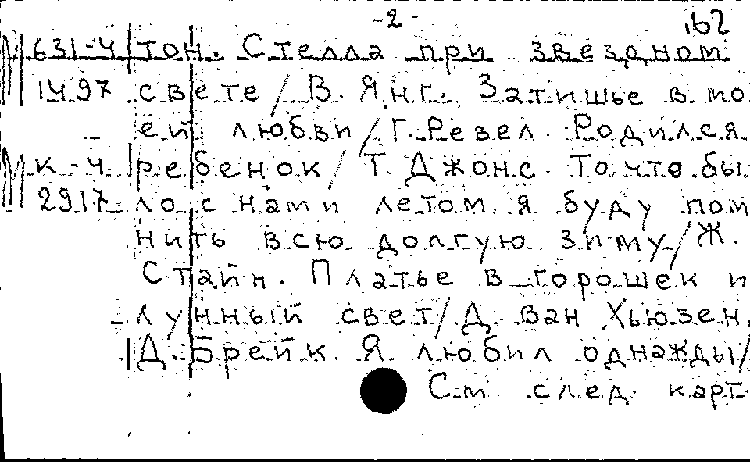 -2- 162
М 631-4 тон. Стелла при звездном
1497 свете/ В. Янг. Затишье в мо
ей любви/ Г. Ревел. Родился
М к-4 ребенок/ Т. Джонс. То что бы
2917 ло с нами летом я буду пом
нить всю долгую зиму/ Ж.
Стайн. Платье в горошек и
лунный свет/ Д. Ван Хьюзен,
Д. Брейк. Я любил однажды/
См след карт